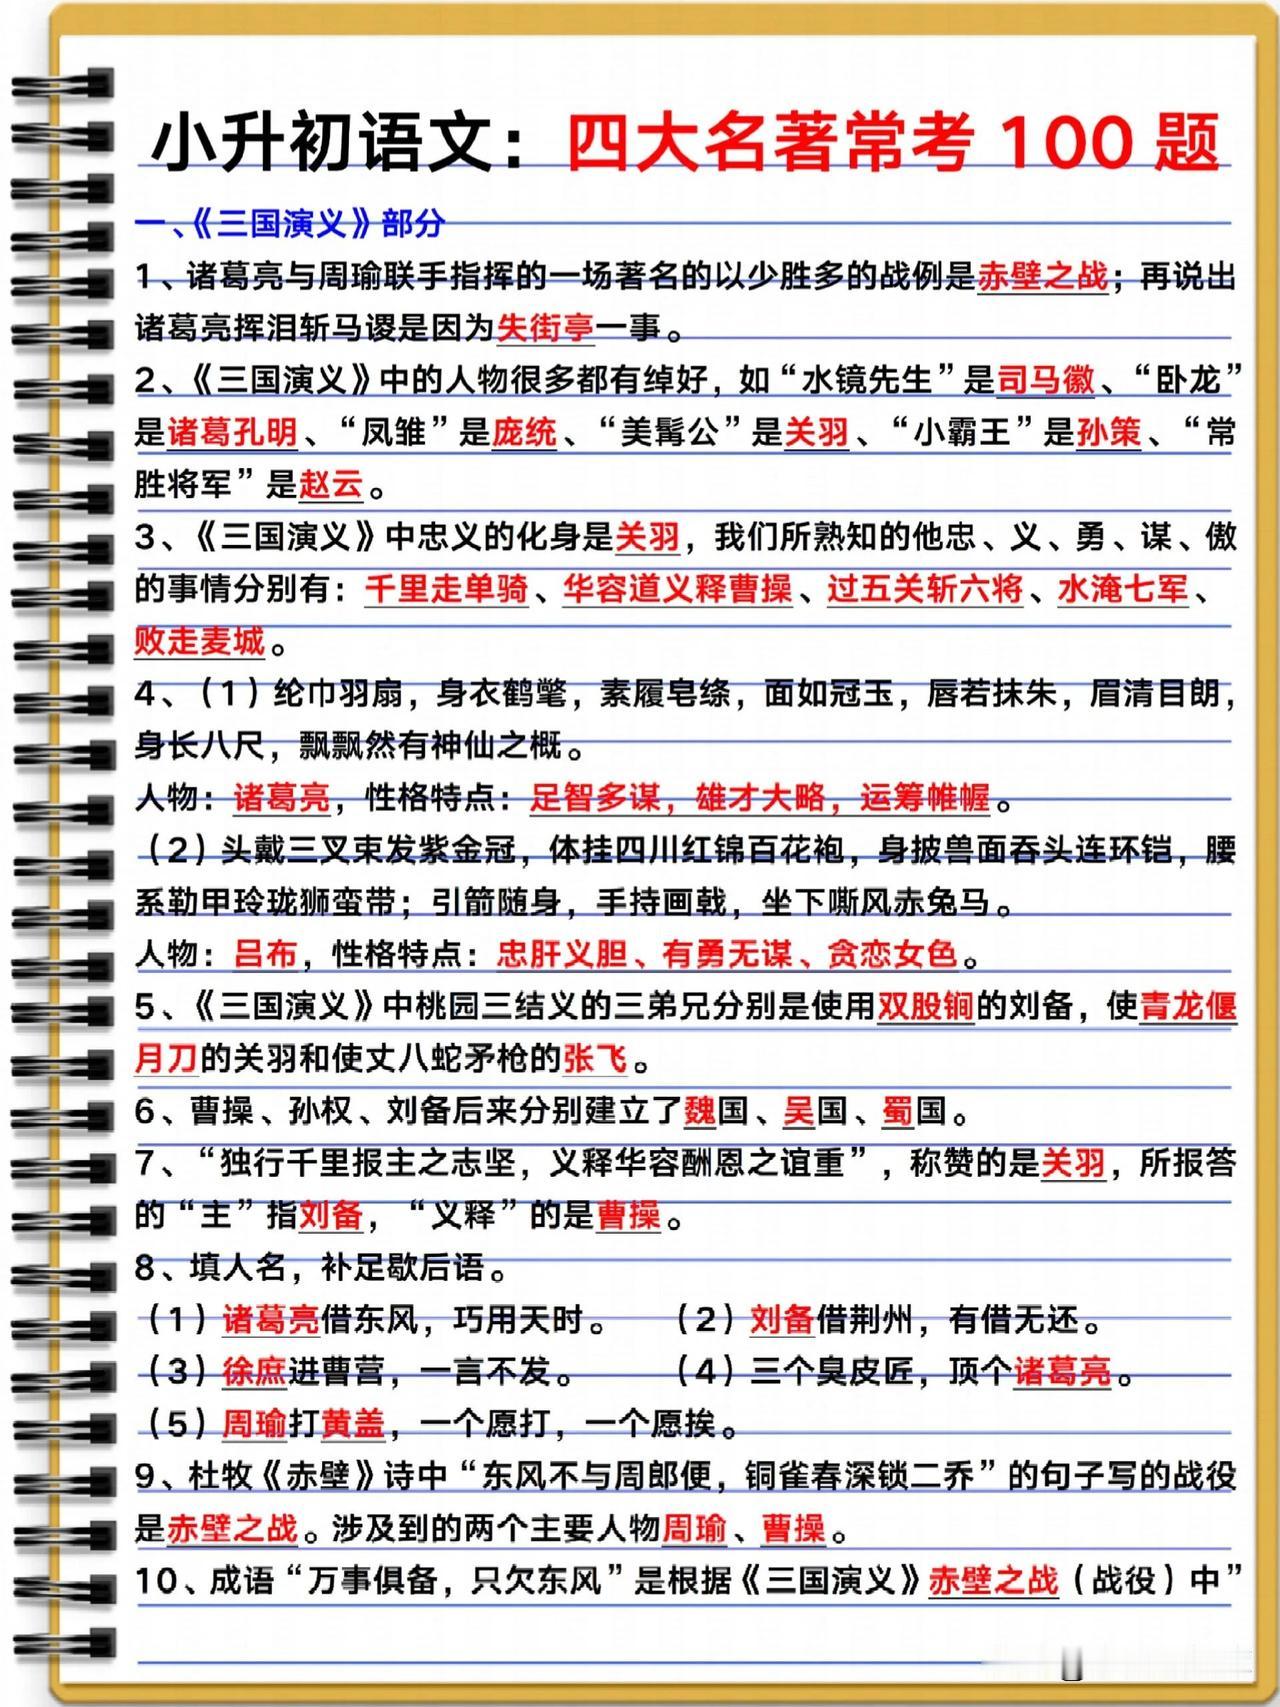 小升初语文：四大名著常考 100 题
一、《三国演义》部分
1、诸葛亮与周瑜联手指挥的一场著名的以少胜多的战例是赤壁之战；再说出
诸葛亮挥泪斩马谡是因为失街亭一事。
2、《三国演义》中的人物很多都有绰好，如“水镜先生”是司马徽、“卧龙”
是诸葛孔明、“凤雏”是庞统、“美髯公”是关羽、“小霸王”是孙策、“常
胜将军”是赵云。
3、《三国演义》中忠义的化身是关羽，我们所熟知的他忠、义、勇、谋、傲
的事情分别有：千里走单骑、华容道义释曹操、过五关斩六将、水淹七军、
败走麦城。
4、（1）纶巾羽扇，身衣鹤氅，素履皂绦，面如冠玉，唇若抹朱，眉清目朗，
身长八尺，飘飘然有神仙之概。
人物：诸葛亮，性格特点：足智多谋，雄才大略，运筹帷幄。
（2）头戴三叉束发紫金冠，体挂四川红锦百花袍，身披兽面吞头连环铠，腰
系勒甲玲珑狮蛮带；引箭随身，手持画戟，坐下嘶风赤兔马。
人物：吕布，性格特点：忠肝义胆、有勇无谋、贪恋女色。
5、《三国演义》中桃园三结义的三弟兄分别是使用双股锏的刘备，使青龙偃
月刀的关羽和使丈八蛇矛枪的张飞。
6、曹操、孙权、刘备后来分别建立了魏国、吴国、蜀国。
7、“独行千里报主之志坚，义释华容酬恩之谊重”，称赞的是关羽，所报答
的“主”指刘备，“义释”的是曹操。
8、填人名，补足歇后语。
（1）诸葛亮借东风，巧用天时。 （2）刘备借荆州，有借无还。
（3）徐庶进曹营，一言不发。 （4）三个臭皮匠，顶个诸葛亮。
（5）周瑜打黄盖，一个愿打，一个愿挨。
9、杜牧《赤壁》诗中“东风不与周郎便，铜雀春深锁二乔”的句子写的战役
是赤壁之战。涉及到的两个主要人物周瑜、曹操。
10、成语“万事俱备，只欠东风”是根据《三国演义》赤壁之战（战役）中”